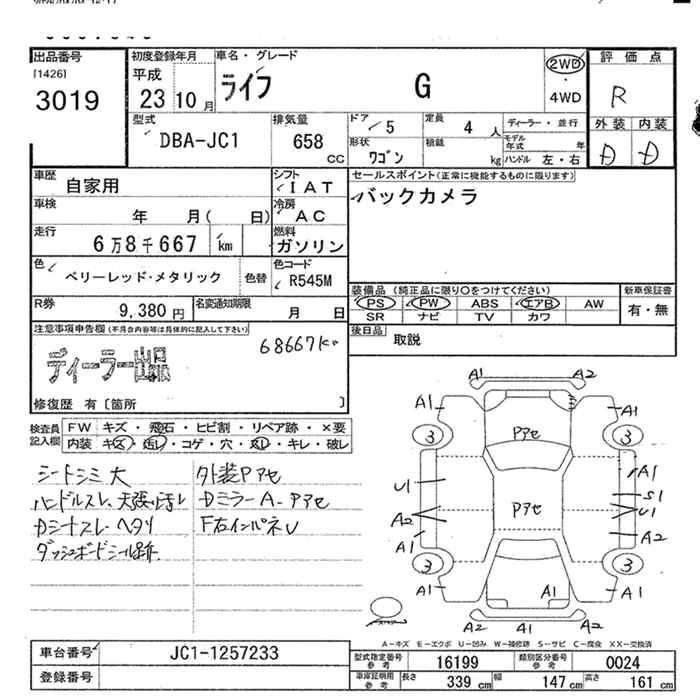 出品番号
[1426]
3019
初度登録年月
平成
23 10 月
車名・グレード
ライフ G
2WD
・
4WD
評価点
R
型式
DBA-JC1
排気量
658
CC
ドア
5
形状
ワゴン
定員
4 人
積載
kg
ディーラー・並行
モデル年式 年
ハンドル 左・右
外装 内装
D D
車歴
自家用
シフト
IAT
車検
年 月( 日)
冷房
AC
走行
6万8千667 km
燃料
ガソリン
色
ベリーレッド・メタリック
色替
色コード
R545M
R券
9,380円
名変通知期限
月 日
セールスポイント(正常に機能するものに限ります)
バックカメラ
装備品 (純正品に限り○をつけてください)
PS PW ABS エアB AW
SR ナビ TV カワ
新車保証書
有・無
後日品
取説
注意事項申告欄(不具合内容等は具体的に記入して下さい)
68667km
ディーラー出品
修復歴 有〔箇所 〕
検査員記入欄
FW キズ・飛石・ヒビ割・リペア跡・×要
内装 キズ・汚レ・コゲ・穴・スレ・キレ・破レ
シートシミ大
ハンドルスレ、天張り汚レ
カーナスレ・ヘタリ
ダッシュボードシール跡
外装Pアセ
DミラーA-アアセ
F右インパネU
A1 A2
A1 A1
3 Pアセ 3
U1 A1
Pアセ S1
U1
A2 A2
A1
3 3
A1 A1 A1
A2 A1 A2
A-キズ E-エクボ U-凹み W-補修跡 S-サビ C-腐食 XX-交換済
車台番号
JC1-1257233
登録番号
型式指定番号
参考
16199
類別区分番号
参考
0024
車庫証明用
参考
長さ 339 cm 幅 147 cm 高さ 161 cm